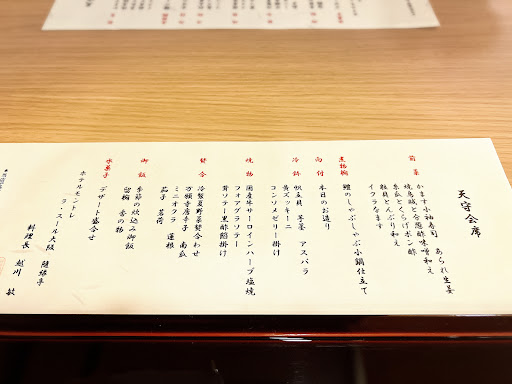 天守会席
前菜
かます小袖寿司 あられ生姜
焼烏賊と分葱酢味噌和え
糸瓜とくらげポン酢
粒貝とんぶり和え
イクラなます
煮物椀
鱧のしゃぶしゃぶ小鍋仕立て
向付
本日のお造り
冷鉢
帆立貝 芋茎 アスパラ
黄ズッキーニ
コンソメゼリー掛け
焼物
国産牛サーロインハーブ塩焼
フォアグラソテー
茸ソテー黒酢餡掛け
焚合
冷製夏野菜焚合わせ
万願寺唐辛子 南瓜
ミニオクラ 蓮根
茄子 茗荷
御飯
季節の炊込み御飯
留椀 香の物
水菓子
デザート盛合せ
ホテルモントレ
ラ・スール大阪 隨縁亭
料理長 越川 敏